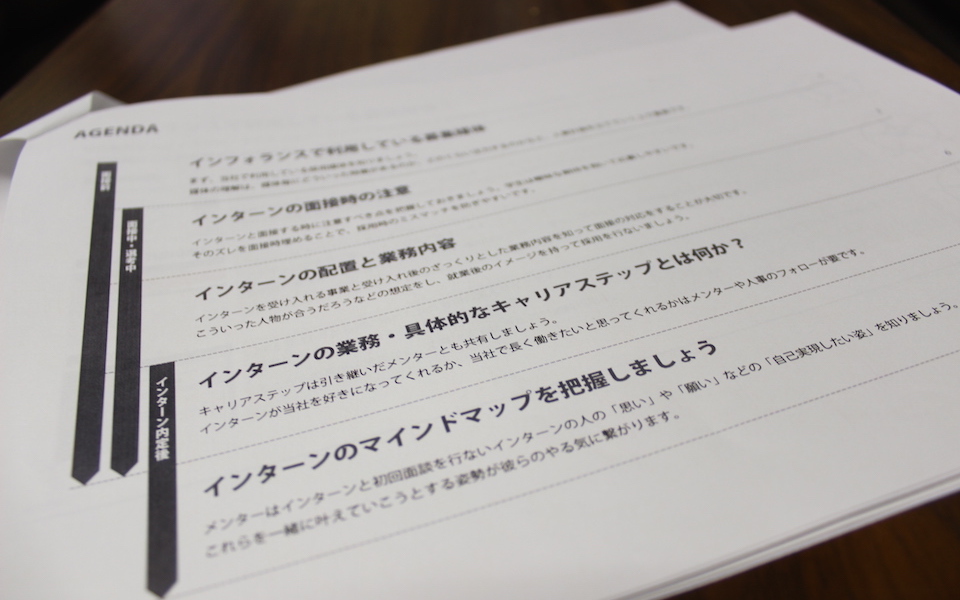 AGENDA
面接前
面接中・選考中
インターン内定後
インフォランスで利用している募集媒体
インターンの面接時の注意
インターンと面接する時に注意すべき点を把握しておきましょう。
そのズレを面接時埋めることで、採用時のミスマッチを防ぎやすいです。
インターンの配置と業務内容
インターンを受け入れる事業と受け入れ後のざっくりとした業務内容を知って面接の対応をすることが大切です。
こういった人物が合うだろうなどの想定をし、就業後のイメージを持って採用を行ないましょう。
インターンの業務・具体的なキャリアステップとは何か？
キャリアステップは引き継いだメンターとも共有しましょう。
インターンが当社を好きになってくれるか、当社で長く働きたいと思ってくれるかはメンターや人事のフォローが要です。
インターンのマインドマップを把握しましょう
メンターはインターンと初回面談を行ないインターンの人の「思い」や「願い」などの「自己実現したい姿」を知りましょう。
これらを一緒に叶えていこうとする姿勢が彼らのやる気に繋がります。